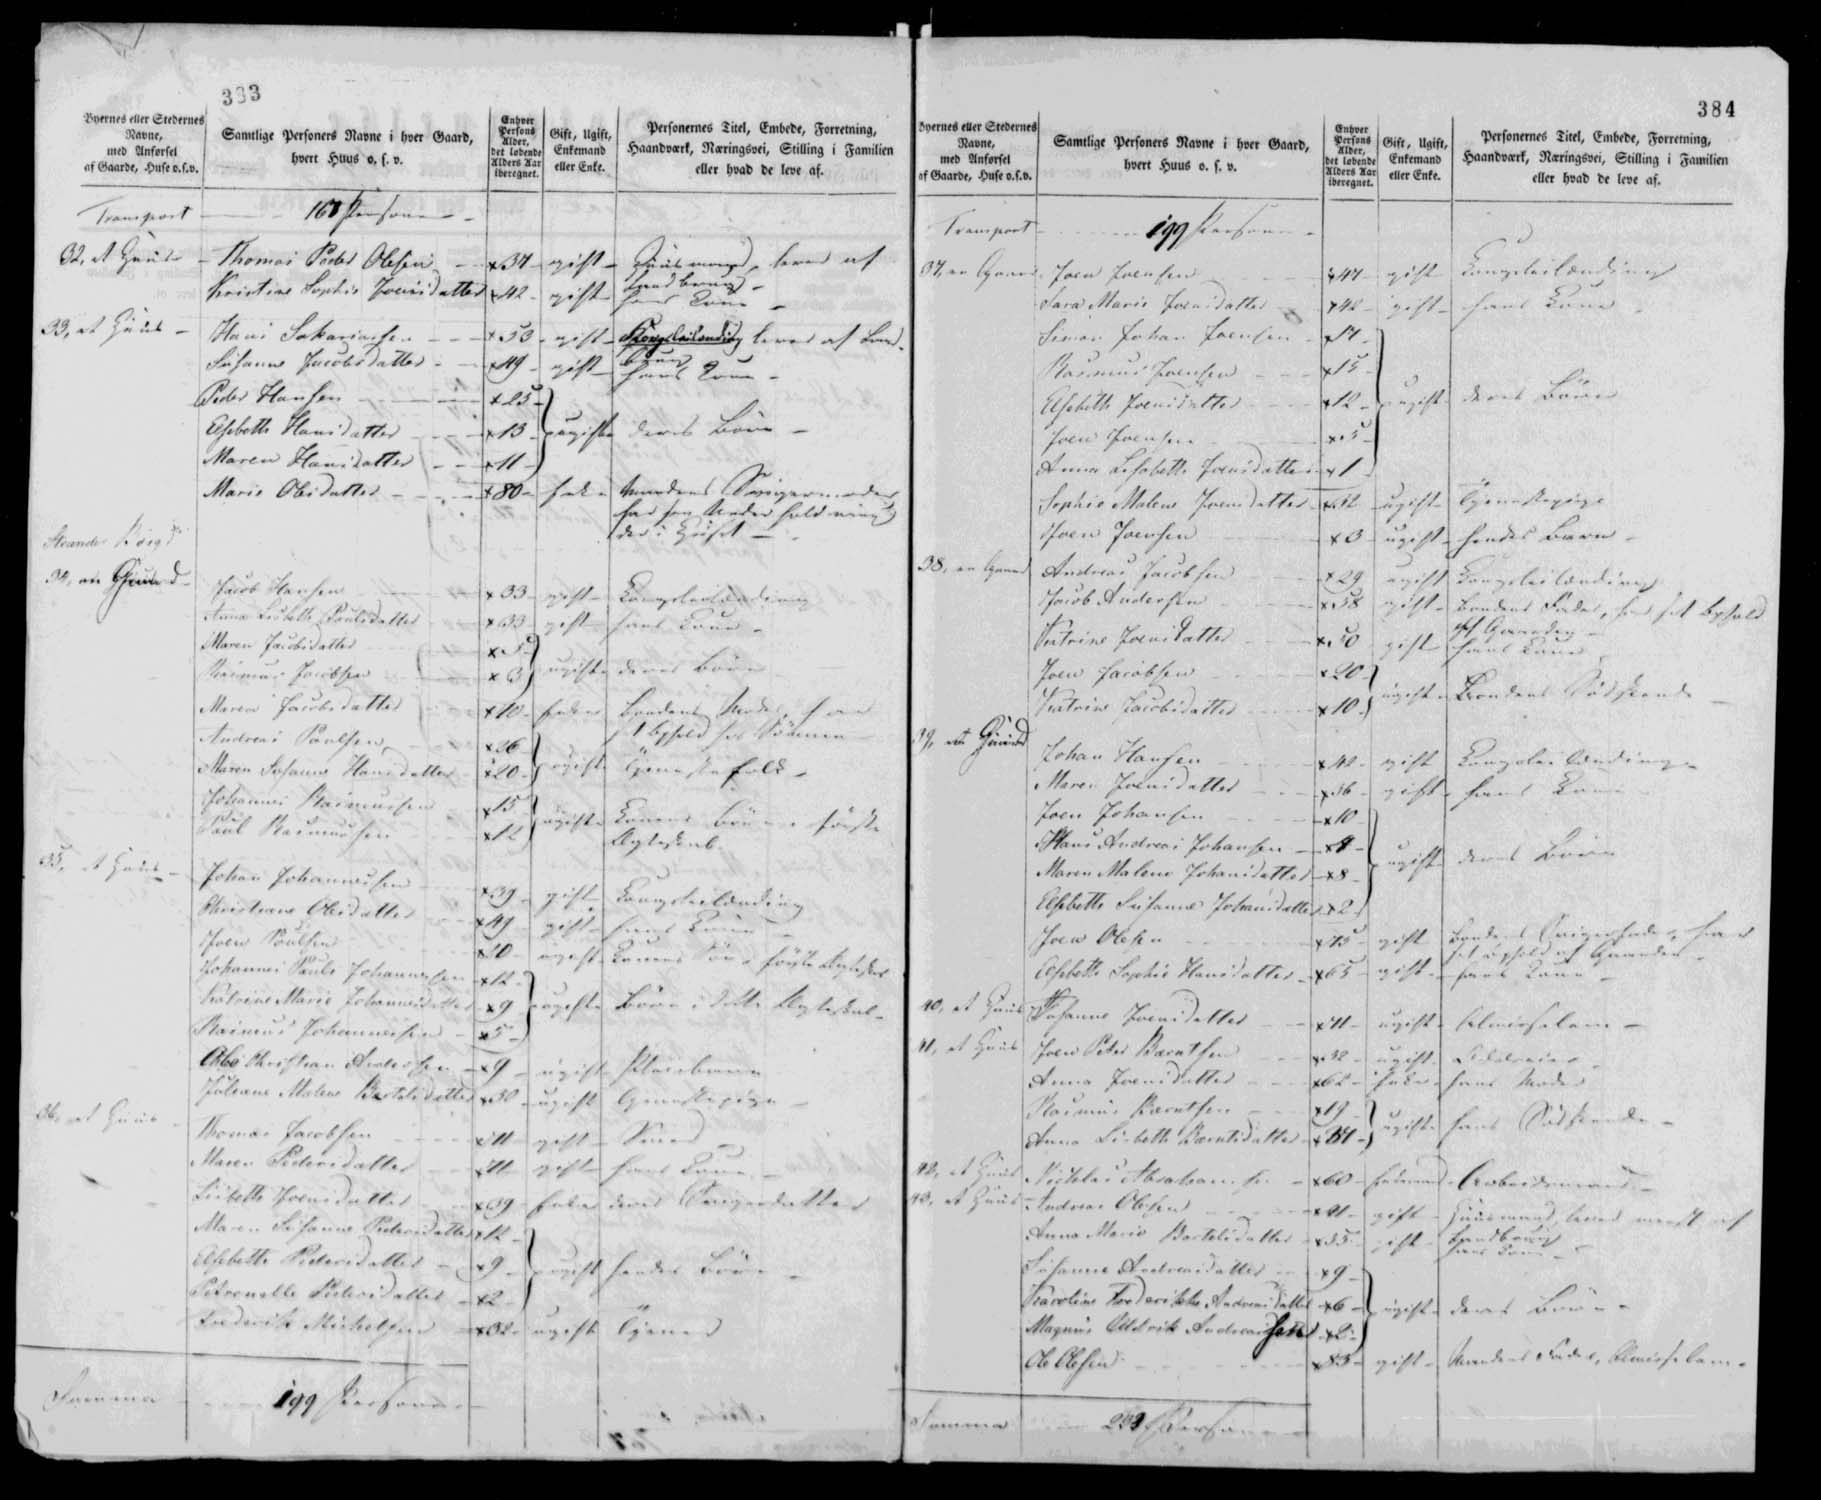 383
Byernes eller Stedernes Navne, med Anførsel af Gaarde, Huse o.s.v.
Samtlige Personers Navne i hver Gaard, hvert Huus o. s. v.
Enhver Persons Alder, det løbende Alders Aar iberegnet.
Gift, Ugift, Enkemand eller Enke.
Personernes Titel, Embede, Forretning, Haandværk, Næringsvei, Stilling i Familien eller hvad de leve af.
Transport 168 Personer
32, et Huus Thomas Peder Olesen 34 gift Huusmand, lever af Landbrug
Kristine Sophie Joensdatter 42 gift hans Kone
33, et Huus Hans Sakariasen 53 gift Kongsleilænding lever af Landbrug
Susanne Jacobsdatter 49 gift hans Kone
Peder Hansen 25
Elsebeth Hansdatter 13 ugifte deres Børn
Maren Hansdatter 11
Marie Olesdatter 80 Enke Mandens Svigermoder
har sin Underholdning
der i Huset
34, en Gaard
Jacob Hansen 33 gift Kongsleilænding
Anna Lisbeth Poulsdatter 33 gift hans Kone
Maren Jacobsdatter 5
Rasmus Jacobsen 3 ugifte deres Børn
Maren Jacobsdatter Enke Bondens Moder, har
sit Ophold hos Sønnen
Andreas Poulsen 26
Maren Susanne Hansdatter 20 ugifte Tjenestefolk
Johannes Rasmussen 15
Poul Rasmussen 12 ugifte Konens Børn i første
Ægteskab
35, et Huus
Johan Johannessen 39 gift Kongsleilænding
Christiane Olesdatter 49 gift hans Kone
Joen Poulsen 20 ugift Konens Søn i første Ægteskab
Johannes Poul Johannessen 12
Katrine Marie Johannesdatter 9 ugifte Børn i dette Ægteskab
Rasmus Johannessen 5
Ole Christian Andersen 9 ugift Pleiebarn
Juliane Malene Bartelsdatter 30 ugift Tjenestepige
36, et Huus
Thomas Jacobsen gift Smed
Maren Pedersdatter gift hans Kone
Lisbeth Joensdatter 39 Enke deres Svigerdatter
Maren Susanne Pedersdatter 12
Elsebeth Pedersdatter 9 ugift hendes Børn
Petronelle Pedersdatter 2
Frederik Michelsen 32 ugift Tjener
Summa 199 Personer
384
Byernes eller Stedernes Navne, med Anførsel af Gaarde, Huse o.s.v.
Samtlige Personers Navne i hver Gaard, hvert Huus o. s. v.
Enhver Persons Alder, det løbende Alders Aar iberegnet.
Gift, Ugift, Enkemand eller Enke.
Personernes Titel, Embede, Forretning, Haandværk, Næringsvei, Stilling i Familien eller hvad de leve af.
Transport 199 Personer
37, en Gaard Joen Joensen 47 gift Kongsleilænding
Sara Marie Joensdatter 42 gift hans Kone
Simon Johan Joensen 17
Rasmus Joensen 15
Elsebeth Joensdatter 12 ugift deres Børn
Joen Joensen 5
Anna Lisabeth Joensdatter 1
Sophie Malene Joensdatter 32 ugift Tjenestepige
Joen Joensen 3 ugift hendes Barn
38, en Gaard Andreas Jacobsen 29 ugift Kongsleilænding
Jacob Andersen 58 gift Bondens Fader, har sit Ophold
af Gaarden
Katrine Joensdatter 50 gift hans Kone
Joen Jacobsen 20
Katrine Jacobsdatter 10 ugift Bondens Sødskende
39, en Gaard
Johan Hansen 42 gift Kongsleilænding
Maren Joensdatter 36 gift hans Kone
Joen Johansen 10
Hans Andreas Johansen
Maren Malene Johansdatter 8 ugift deres Børn
Elsebeth Susanne Johansdatter 2
Joen Olesen 75 gift Bondens Svigerfader, har
sit Ophold af Gaarden
Elsebeth Sophie Hansdatter 65 gift hans Kone
40, et Huus Susanne Joensdatter 71 ugift Almisselem
41, et Huus Joen Peter Barentsen 32 ugift
Anna Joensdatter 62 Enke hans Moder
Rasmus Barentsen 19
Anna Lisbeth Barentsdatter ugift hans Sødskende
42, et Huus Nichlas Abrahamsen 60 Enkemand Arbeidsmand
43, et Huus Andreas Olesen 41 gift Huusmand, lever meest af
Landbrug
Anna Marie Bartelsdatter 35 gift hans Kone
Susanne Andreasdatter 9
Karoline Frederikke Andreasdatter 6 ugift deres Børn
Magnus Uldrik Andreassen 2
Ole Olesen 83 gift Mandens Fader, Almisselem
Summa Personer